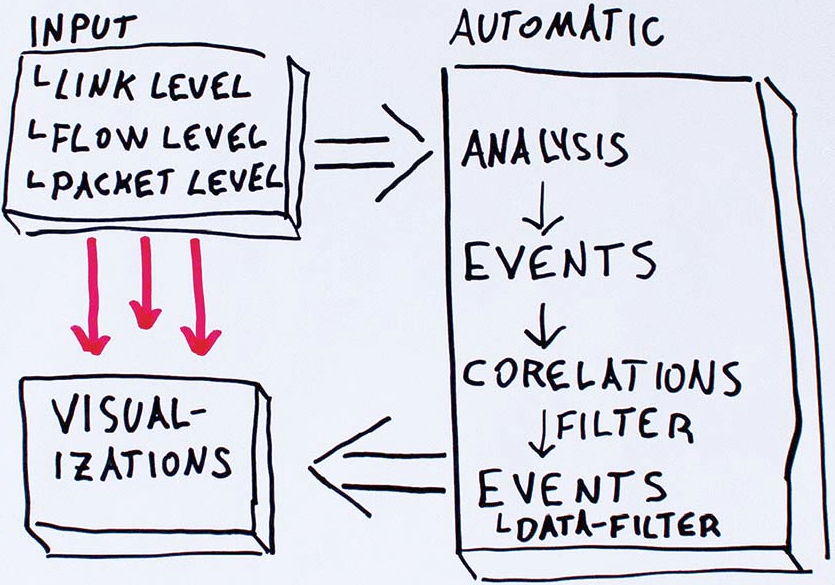 INPUT
LINK LEVEL
FLOW LEVEL
PACKET LEVEL
AUTOMATIC
ANALYSIS
EVENTS
CORELATIONS
FILTER
EVENTS
DATA-FILTER
VISUAL-
IZATIONS